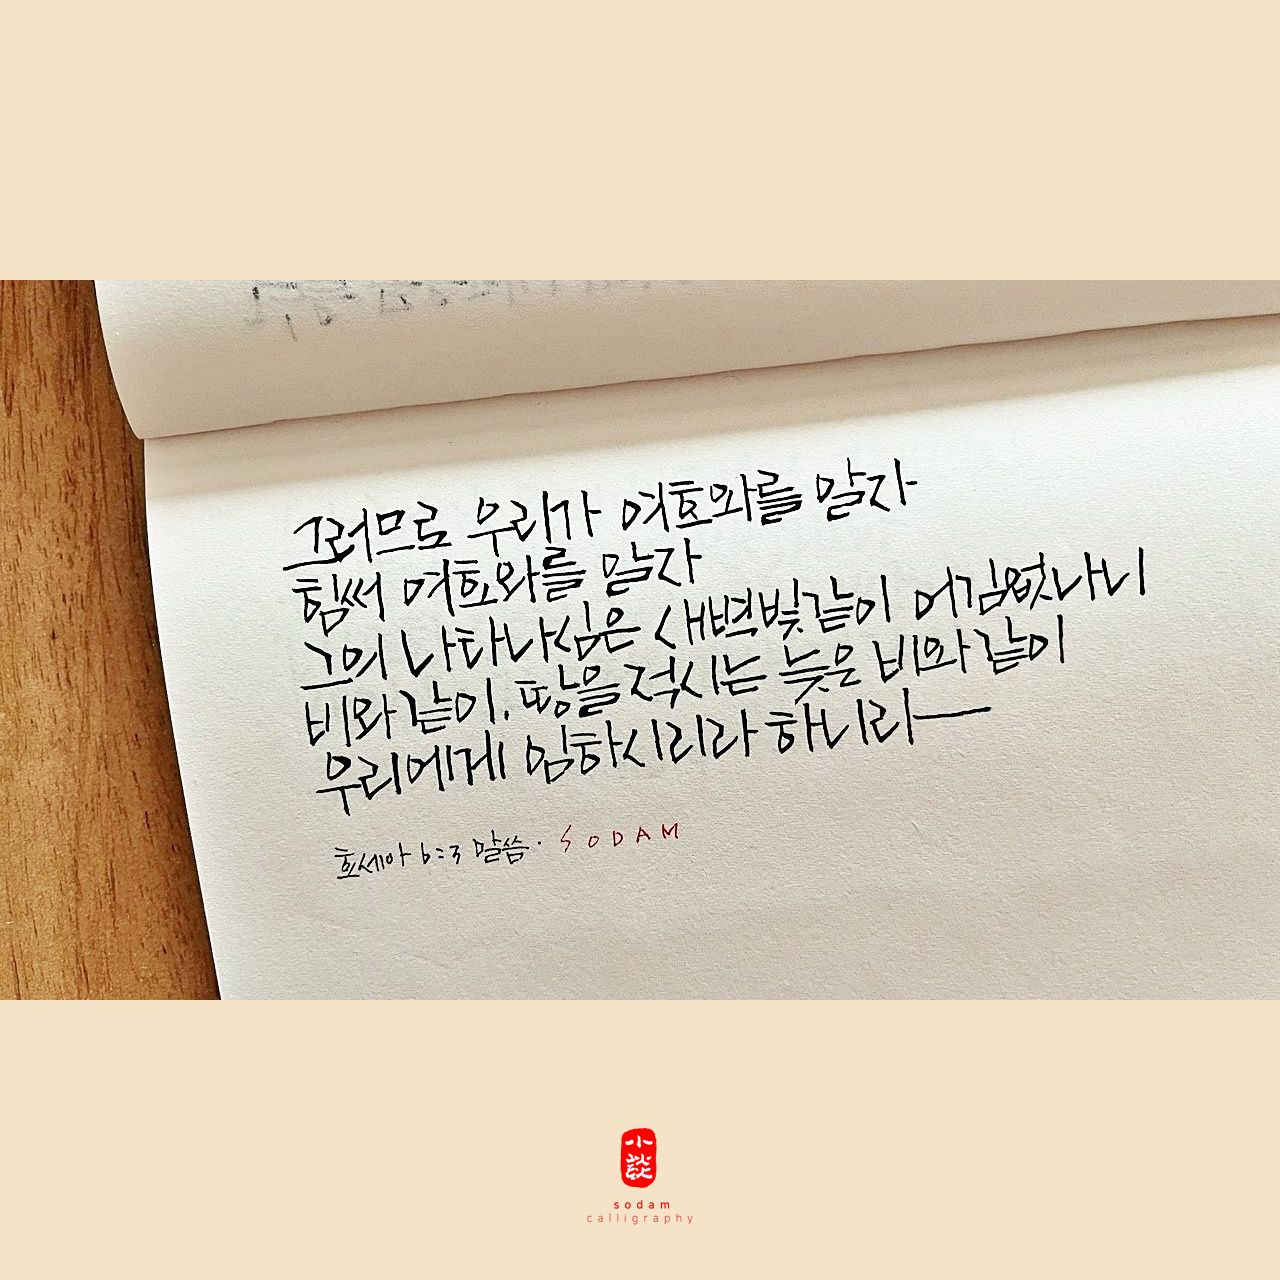 그러므로 우리가 여호와를 알자
힘써 여호와를 알자
그의 나타나심은 새벽빛같이 어김없나니
비와같이, 땅을 적시는 늦은 비와같이
우리에게 임하시리라 하니라
호세아 6:3 말씀. SODAM
小談
sodam
calligraphy